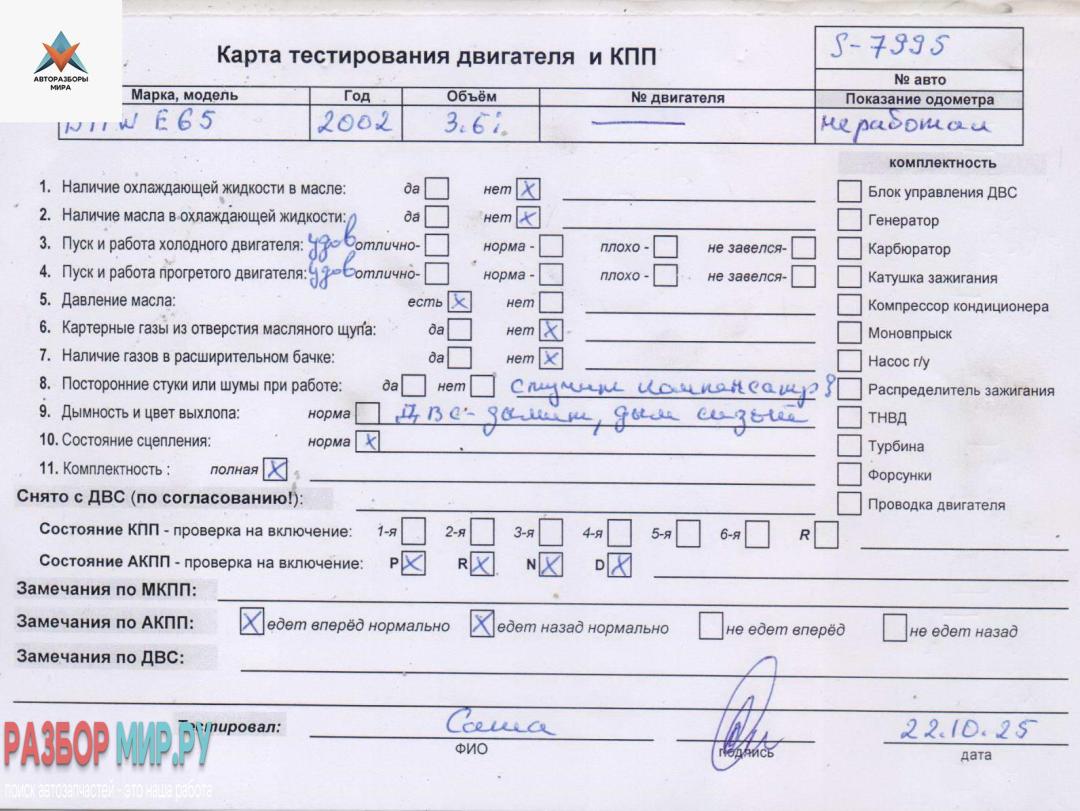 АВТОРАЗБОРЫ
МИРА
Карта тестирования двигателя и КПП
S-7995
№ авто
Марка, модель Год Объём № двигателя Показание одометра
E65 2002 3.6i неработал
комплектность
1. Наличие охлаждающей жидкости в масле: да нет X Блок управления ДВС
2. Наличие масла в охлаждающей жидкости: да нет X Генератор
3. Пуск и работа холодного двигателя: удов отлично- норма - плохо - не завелся- Карбюратор
4. Пуск и работа прогретого двигателя: удов отлично- норма - плохо - не завелся- Катушка зажигания
5. Давление масла: есть X нет Компрессор кондиционера
6. Картерные газы из отверстия масляного щупа: да нет X Моновпрыск
7. Наличие газов в расширительном бачке: да нет X Насос г/у
8. Посторонние стуки или шумы при работе: да нет стучит Распределитель зажигания
9. Дымность и цвет выхлопа: норма ДВС - дымит, дым сизый ТНВД
10. Состояние сцепления: норма X Турбина
11. Комплектность : полная X Форсунки
Снято с ДВС (по согласованию!): Проводка двигателя
Состояние КПП - проверка на включение: 1-я 2-я 3-я 4-я 5-я 6-я R
Состояние АКПП - проверка на включение: P X R X N X D X
Замечания по МКПП:
Замечания по АКПП: X едет вперёд нормально X едет назад нормально не едет вперёд не едет назад
Замечания по ДВС:
Тестировал: Саша 22.10.25
ФИО подпись дата
РАЗБОР МИР.РУ
поиск автозапчастей - это наша работа